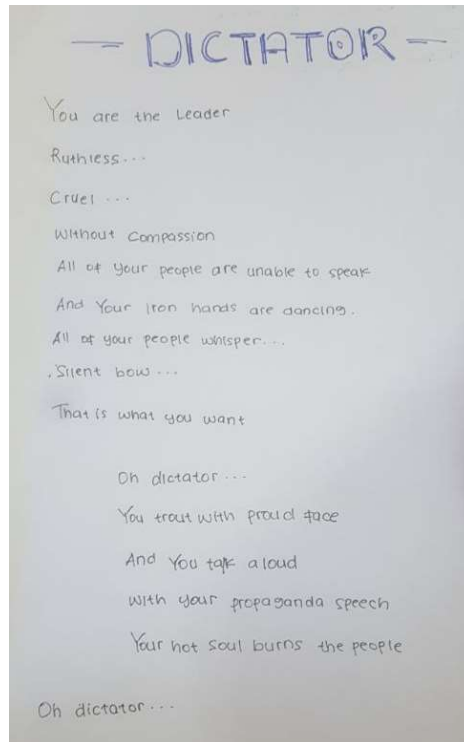 - DICTATOR -
You are the Leader
Ruthless...
Cruel ...
Without Compassion
All of your people are unable to speak
And Your iron hands are dancing.
All of your people whisper...
.Silent bow ...
That is what you want
Oh dictator ...
You trout with proud face
And You talk aloud
With your propaganda speech
Your hot soul burns the people
Oh dictator ...